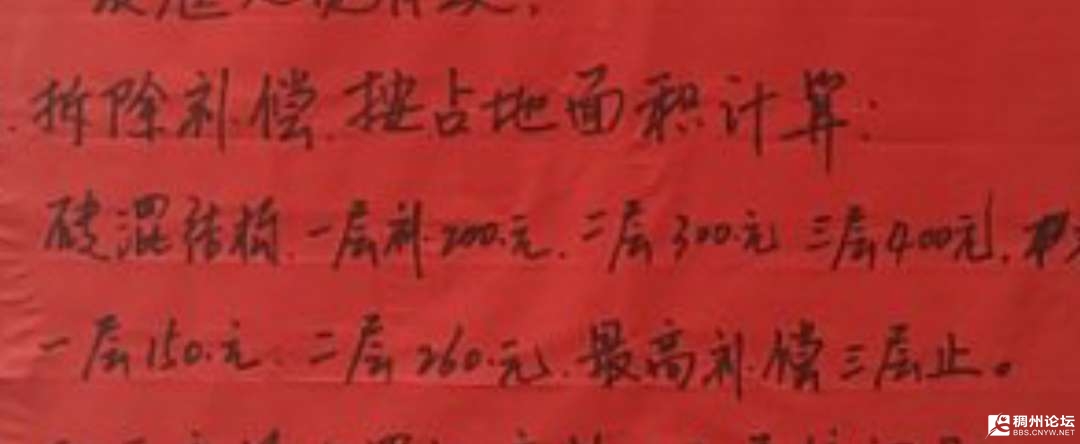 拆除补偿.按占地面积计算:
砖混结构.一层补200.元.二层300.元 三层400元.
一层150.元.二层260.元.最高补偿三层止。
稠州论坛
BBS.CNYW.NET